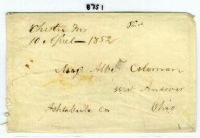 8751
Chester Ms
10 April — 1852
Maj. Albt Coleman
West Andover
Ashtabula Co
Ohio